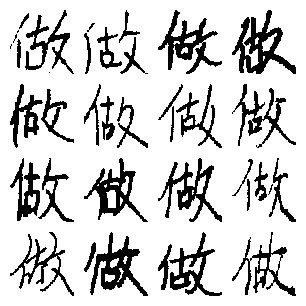 做做做做
做做做做
做做做做
做做做做